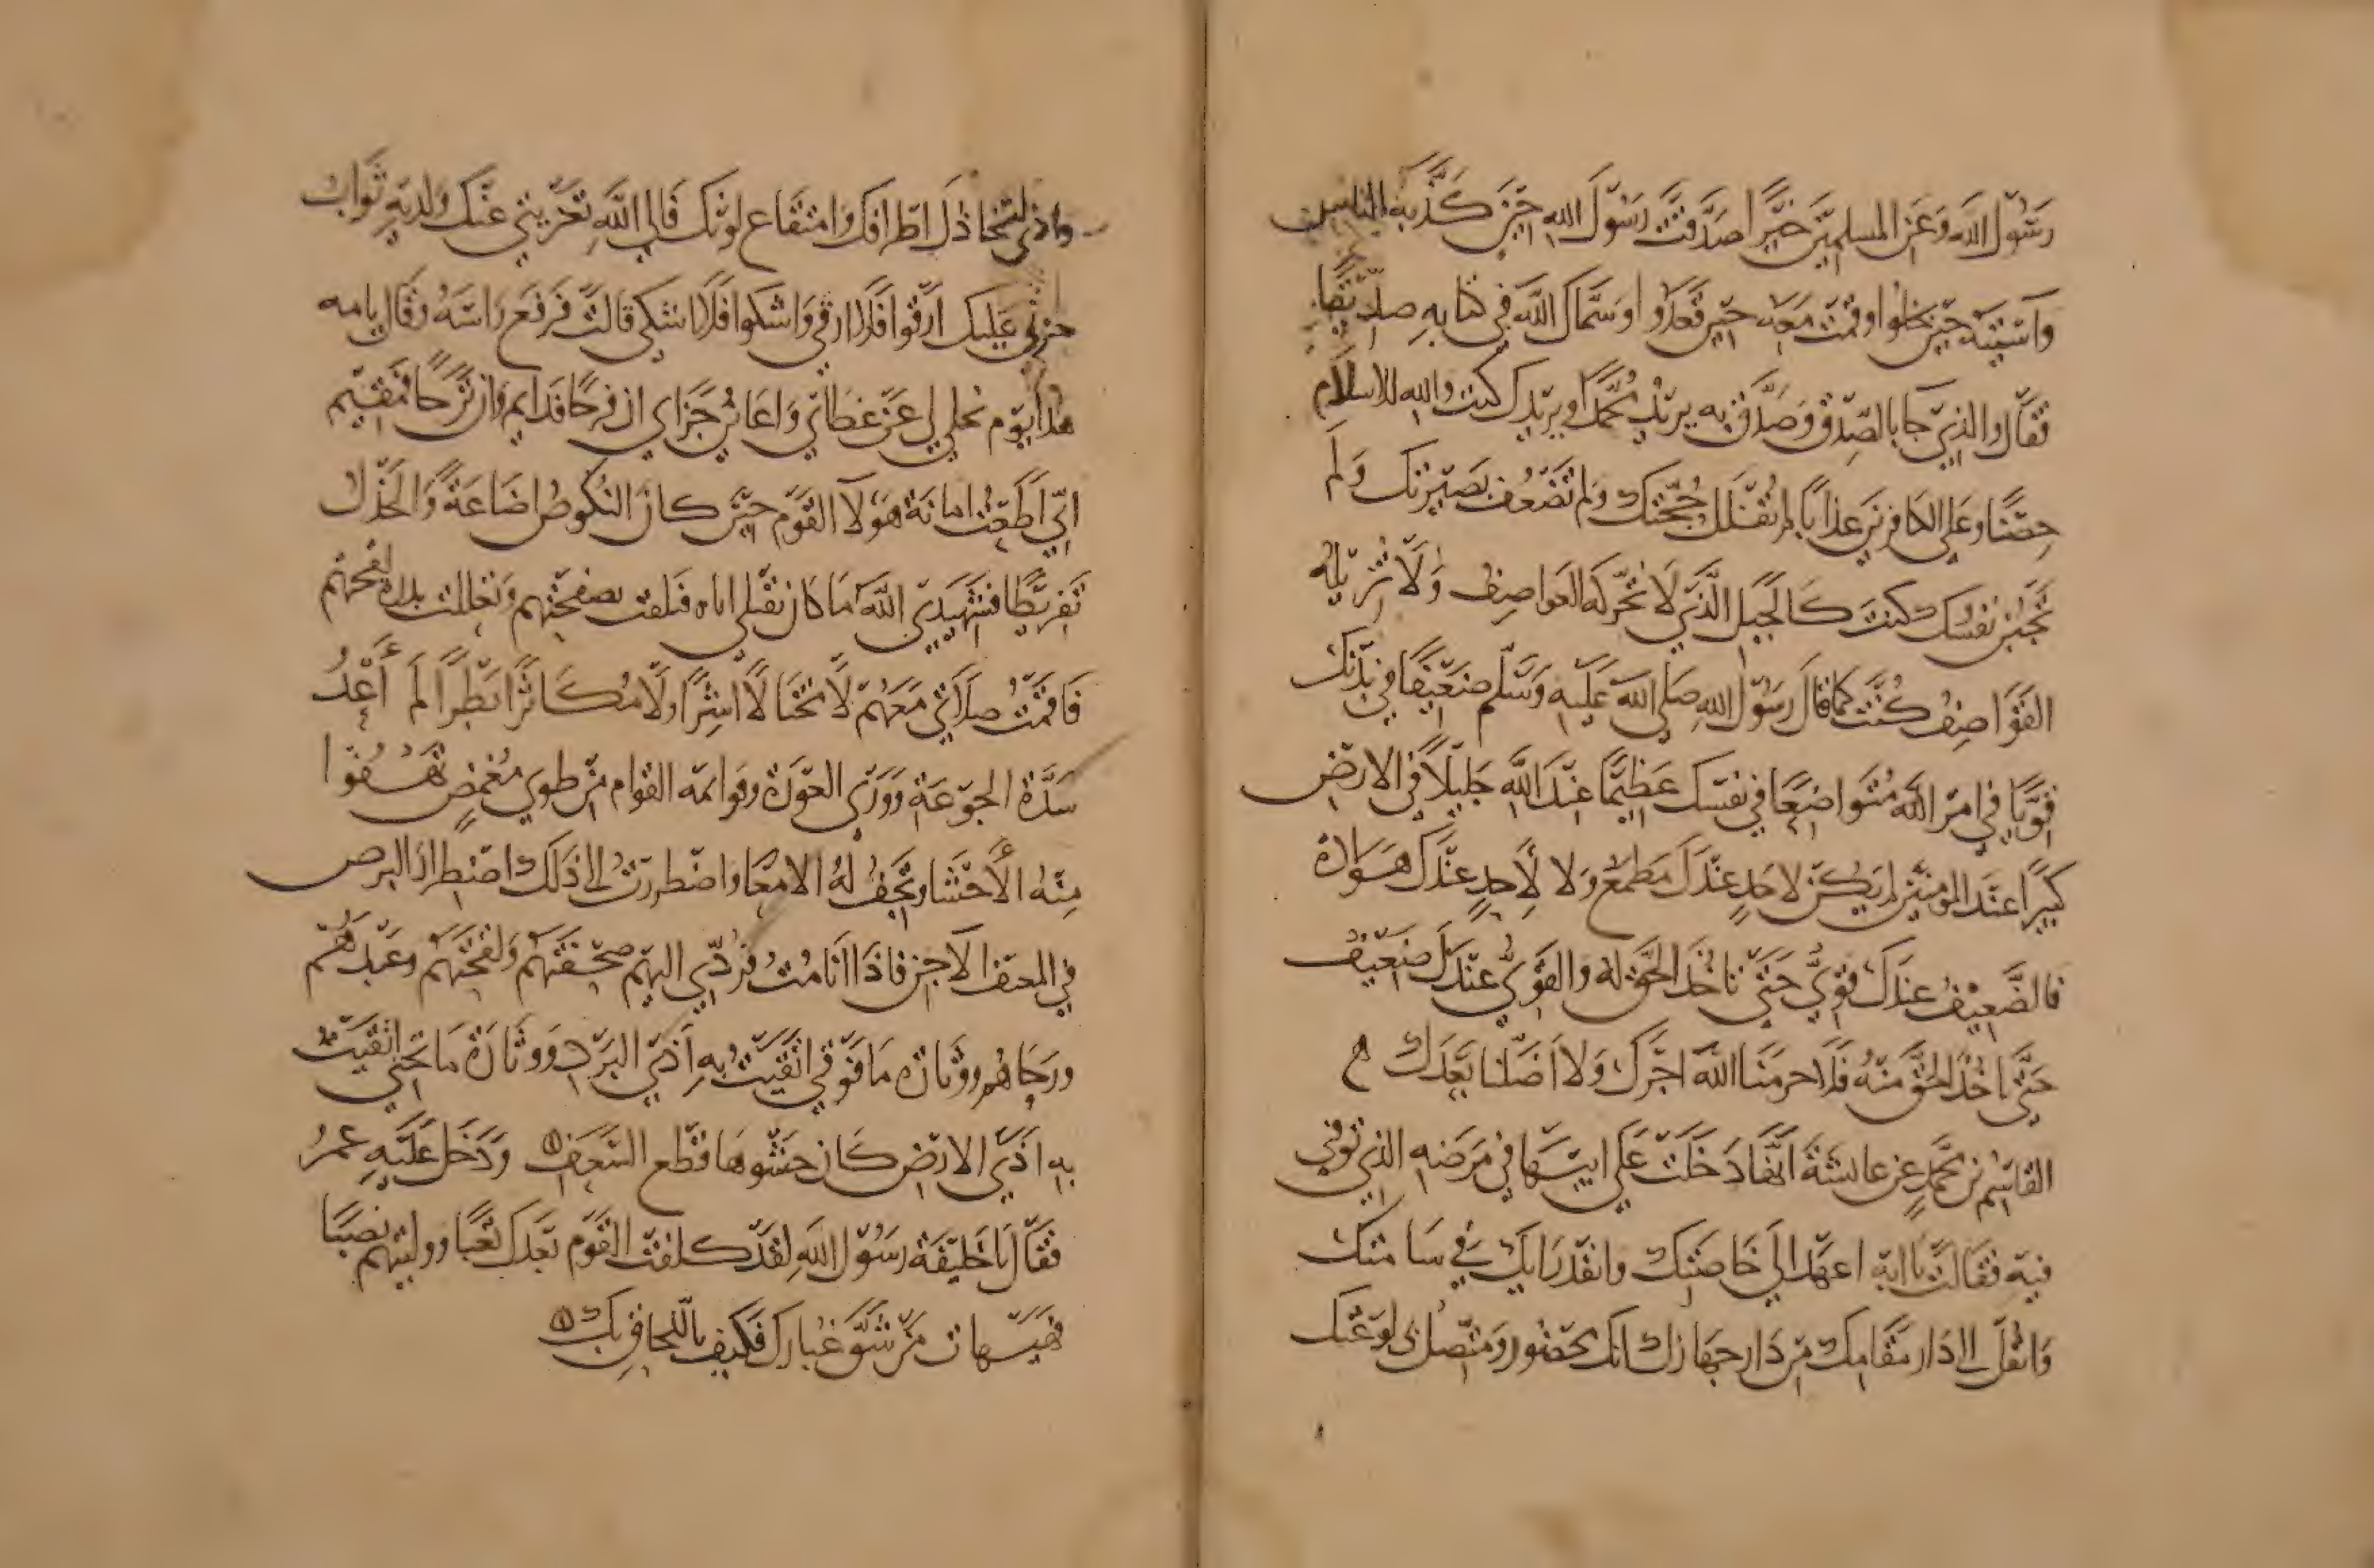 رَسُوْل اللَّه وَعَنِ المسلمِيْنَ خَيْرًا صَدَّقْتَ رَسُوْلَ الله حِيْنَ كَذَّبَهُ الناس
وَآسَيْتَهُ حِيْنَ بخلوا وقمْتَ مَعَهُ حِيْن قَعَدُوا وسَمَّاكَ اللَّه فِي كتابهِ صدّيْقًا
فقَالَ والذِيْ جَا بالصِّدْقِ وَصَدَّقَ به يرِيْدُ مُحَمَّدًا ويرِيْدك كنت والله للاسلام
حِصْنًا وعَلى الكافرِيْنَ عذابًا لم تُقْلَلْ حُجَّتكَ ولم تَضْعُفْ بَصِيْرتكَ وَلَم
تَجْبُنْ نَفْسُكَ كنتَ كَالجَبَل الَّذِيْ لَا تُحَرِّكه العَواصِفُ وَلَا تُزِيْلُه
القَوَاصِفُ كُنْتَ كَمَا قالَ رَسُوْل اللهِ صَلى اللهُ عَلَيهِ وَسَلّم ضَعِيْفًا في بَدَنكَ
قَوِيًّا في امْرِ اللَّه مُتَوَاضِعًا في نفسِكَ عَظِيْمًا عِنْدَ اللَّهِ جَلِيْلًا فِي الارْضِ
كبِيْرًا عنْدَ المومنِيْنَ لم يَكُنْ لاحَدٍ عنْدَكَ مَطْمعٌ وَلا لِأَحدٍ عنْدَكَ هَوَادةٌ
فالضَّعِيْفُ عِندَكَ قَوِيٌّ حَتَّى تاخُذَ الحَقَّ لهُ والقَوِيُّ عِنْدَكَ ضَعِيْفٌ
حَتَّى تاخُذَ الحَقَّ مِنْهُ فَلَا حرمَنَا اللَّهُ اجْرَكَ وَلا اَضَلّنا بَعْدَكَ ه
القاسِمُ بْن مُحَمَّدٍ عن عايشةَ انَّهَا دَخَلَتْ عَلى ابِيْهَا في مَرَضهِ الذِي توُفِّي
فيْهِ فقَالَتْ يَا ابَهِ اعهَدْ الَى خَاصَّتِكَ وانفذْ رَايَكَ في سَامَّتكَ
وَانقُلْ الى دَار مَقَامِكَ مِنْ دَار جهَازكَ انكَ محْضُور ومُتّصلٌ بي لوْعَتكَ
وارَى تخاذلَ اطرافكَ وَامتقَاع لَوْنكَ فَالى اللَّهِ تَعْزيَتي عَنْكَ ولديْهِ ثَوابُ
حزْنِي عَلَيكَ اَرْقُوا فَلَا ارقَى وَاشكوا فَلَا اشكَى قالَتْ فَرَفَعَ رَاسَهُ وقَالَ يامه
هذا يَوْم يخلى لي عَنْ غطَائي وَاعَاينُ جَزَاي ان فرحًا فدَايم وان تَرَحًا فمقِيْم
انّي اَطَعْتُ امَانَةَ هَوُلَا القَوْم حِيْنَ كانَ النكُوصُ اضَاعَةً وَالخزْلُ
تَفرِيْطًا فشَهِيْدِيَ اللَّهُ مَا كانَ بقلبي اياه فتلقت بصفحتهم وتعللت بدرة لقحتهم
فَاقمْتُ صَلَاتِيْ مَعَهُمْ لَا مختَالًا اشِرًا ولَا مُكَاثرًا بَطِرًا لَم أَعْدُ
سَدَّةَ الجَوْعَةِ وَوَرْيَ العَوْرَة وقوامَه القوام مِنْ طوى مُمْغصٍ تَهْفُوا
مِنْهُ الأَحْشَا وتَجِفُّ لهُ الامعَا واضطررتُ الى ذَلكَ اضْطِرارَ البرض
في المعتف الاجِن فاذَا انا مُتُّ فرُدِّي اليْهِم صَحْفَتَهُمْ وَلِقْحَتَهُمْ وعَبْدَهُمْ
ورَحَاهُم ووثَارَة مَا فَوْقي اتقَيْتُ بهِ اذَيَ البَرْدِ وَوثَارَةَ مَا تحْتي اتقَيْتُ
بِهِ اَذَيَ الارْضِ كَانَ حَشْوهَا قطَع السَّعَفِ ودَخَلَ عَلَيْهِ عمرُ
فقَالَ يا خَلِيْفَةَ رَسُوْلِ اللَّهِ لقَدْ كلفْتَ القَوْم بَعْدَكَ تَعَبًا ووليْتَهم نصَبًا
فهَيْهاتَ مَنْ شَقّ غبَارك فَكيْف باللحَاقِ بكَ